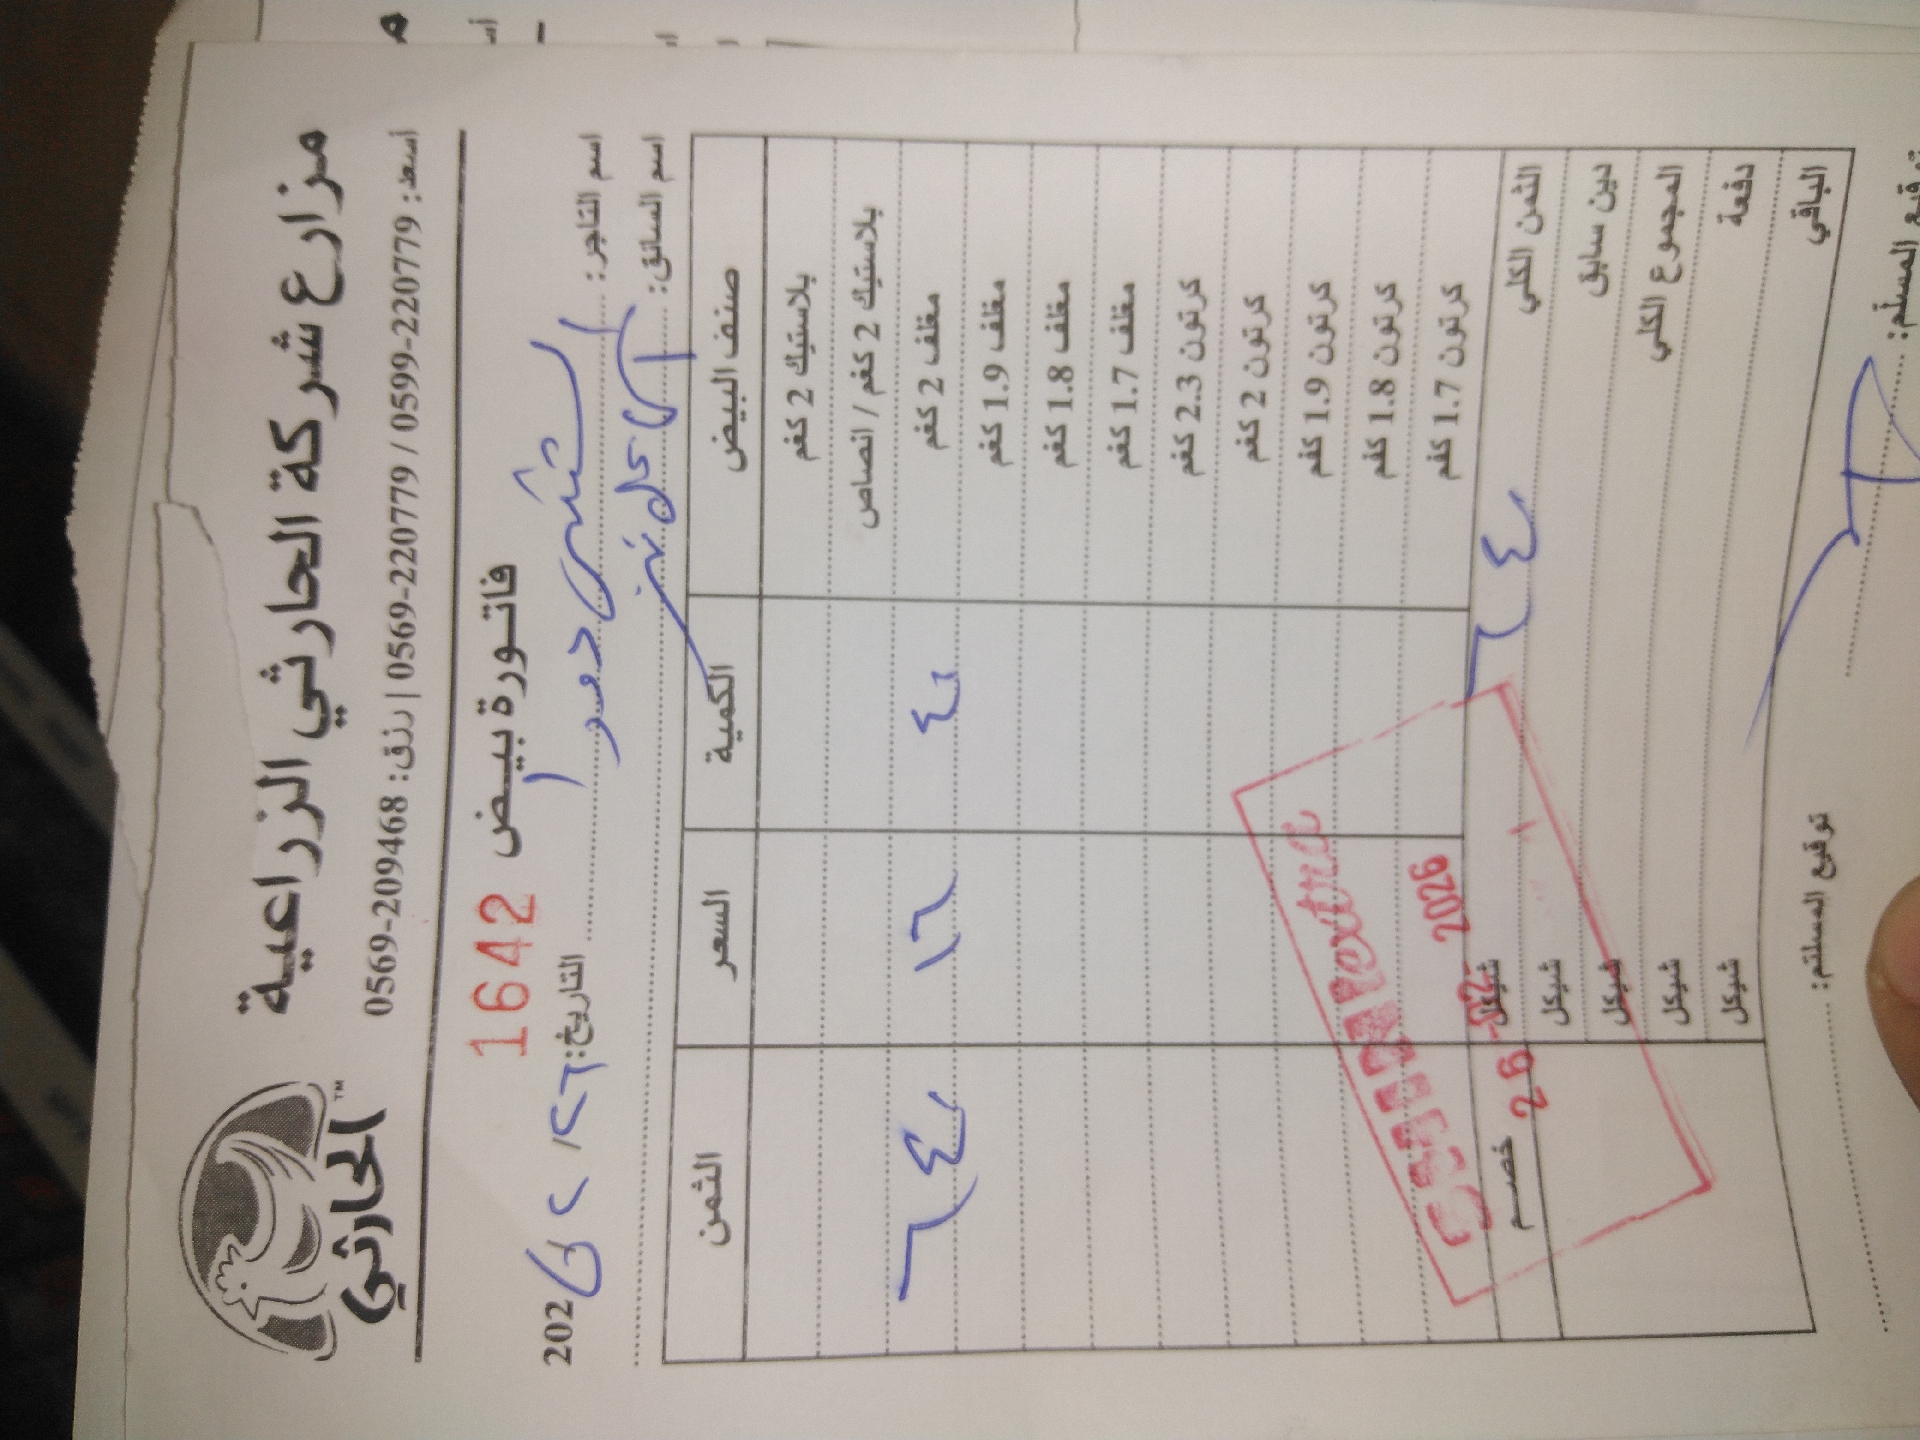 مزارع شركة الحارثي الزراعية
الحارثي
TM
أسعد: 0599-220779 / 0569-220779 | رزق: 0569-209468
فاتورة بيض 1642
اسم التاجر: التاريخ: ٢٦ / ٢ / 2026
اسم السائق:
صنف البيض الكمية السعر الثمن
بلاستيك 2 كغم
بلاستيك 2 كغم / انصاص
مغلف 2 كغم ٤٠ ١٦ ٦٤٠
مغلف 1.9 كغم
مغلف 1.8 كغم
مغلف 1.7 كغم
كرتون 2.3 كغم
كرتون 2 كغم
كرتون 1.9 كغم
كرتون 1.8 كغم
كرتون 1.7 كغم
الثمن الكلي ٦٤٠ شيكل خصم
دين سابق شيكل
المجموع الكلي شيكل
دفعة شيكل
الباقي شيكل
extra
26 -02- 2026
توقيع المسلّم: توقيع المستلم: